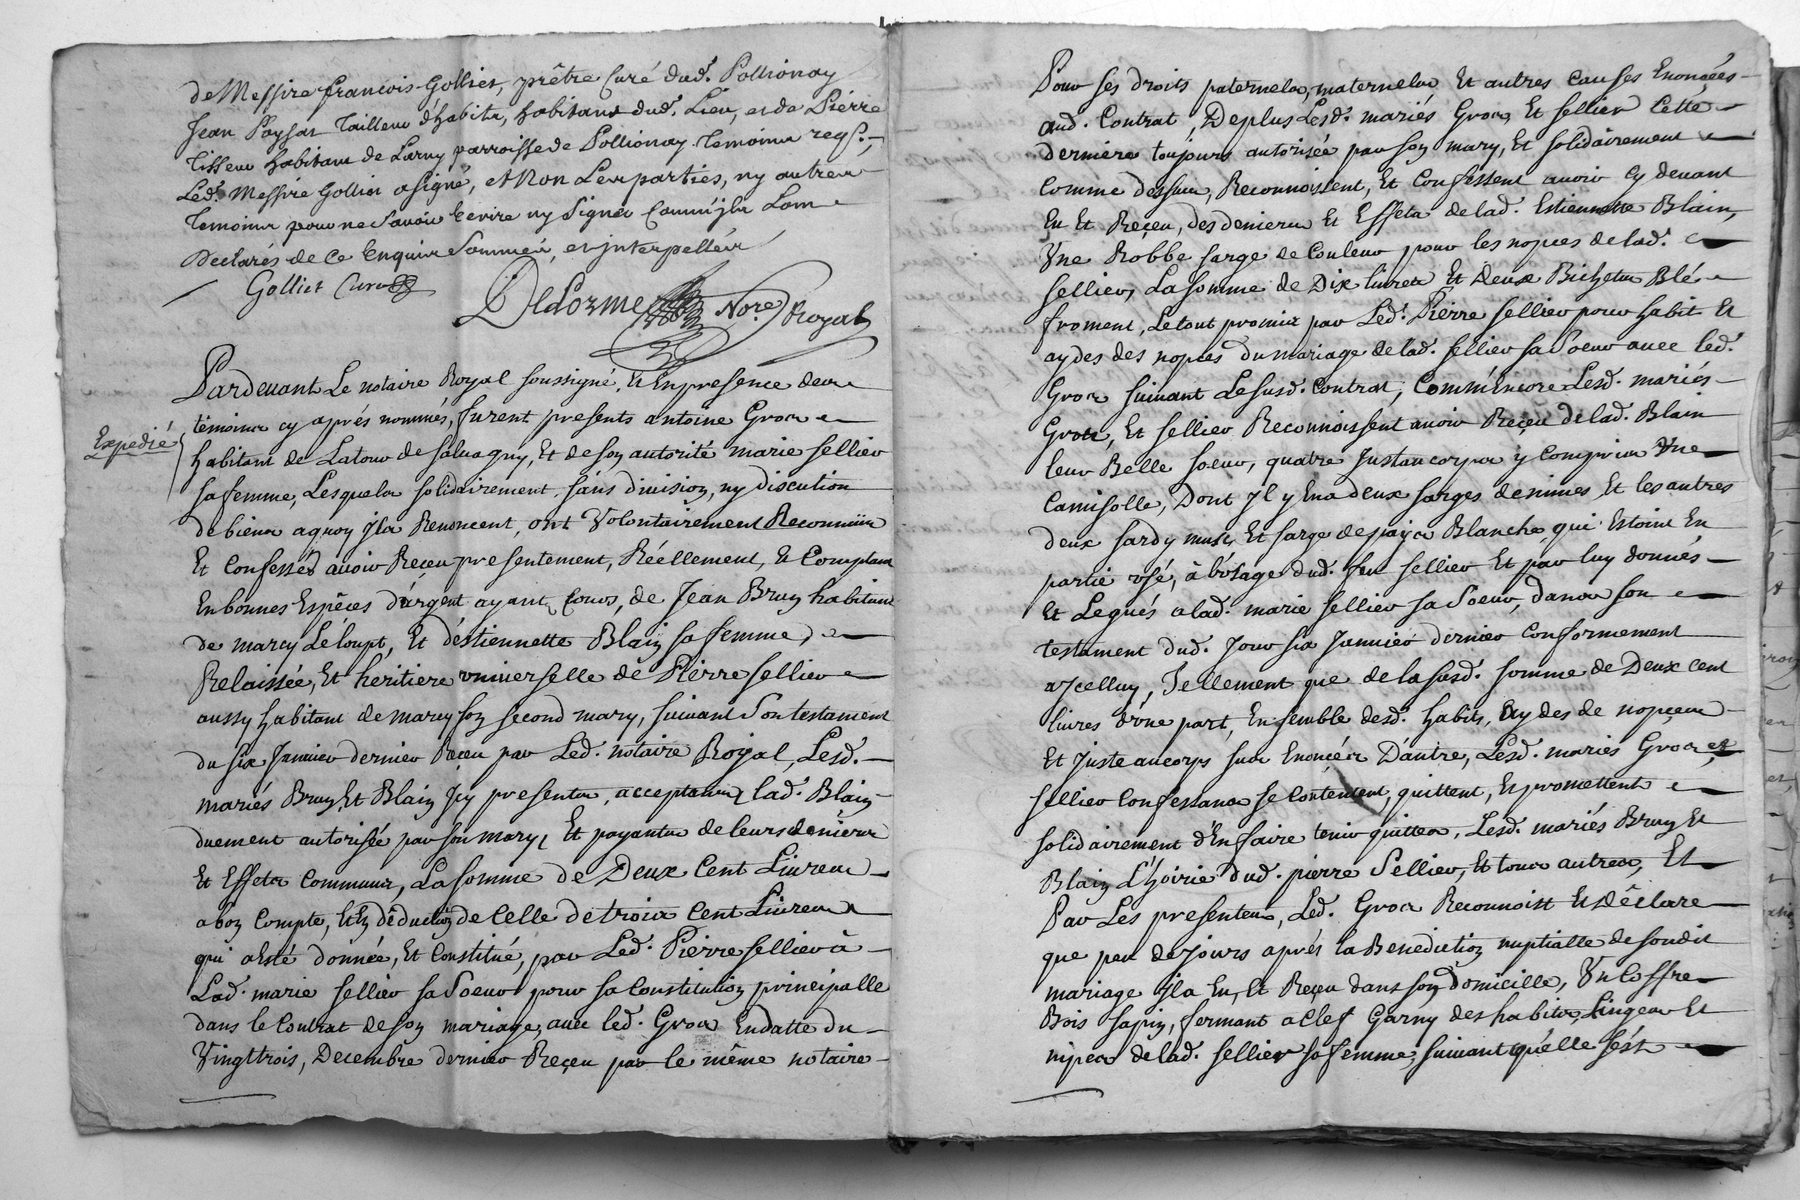 de Messire francois Gollier, prêtre Curé dud. Pollionay
Jean Paysat Tailleur d'habits, habitant dud. Lieu, et de Pierre
Tisseur habitant de Larny parroisse de Pollionay Temoins reqs.,
Led. Messire Gollier a signé, et Non Les parties, ny autres
Temoins pour ne Savoir Ecrire ny Signer Comm'jls L'om
Declarés de ce Enquis Sommés, et jnterpellés
Gollier Curé
Delorme Nore. Royal
Expedié
Pardevant Le notaire Royal soussigné, Et En presence des
témoins cy aprés nommés, furent presents antoine Gros
habitant de Latour de Salvagny, Et de son autorité marie sellier
sa femme, Lesquels solidairement sans division, ny discution
de biens a quoy jls Renoncent, ont Volontairement Reconnus
Et Confessés avoir Reçeu presentement, Réellement, Et Comptant
En bonnes Espêces d'argent ayant Cours, de Jean Bruy habitant
de marcy Léloupt, Et d'éstiennette Blain sa femme,
Relaissée, Et heritiere vniverselle de Pierre sellier
aussy habitant de marcy son second mary, suivant Son testament
du six Janvier dernier Reçeu par Led. notaire Royal, Lesd.
mariés Bruy Et Blain Jcy presents, acceptants, lad. Blain
duement autorisée par son mary, Et payants de leurs deniers
Et Effets Communs, La somme de Deux Cent Livres
a bon Compte, Et En déduction de Celle de trois Cent Livres
qui a Esté donnée, Et Constitué, par Led. Pierre sellier à
Lad. marie sellier sa Soeur pour sa Constitution principalle
dans le Contrat de son mariage, avec led. Gros En datte du
Vingttrois, Decembre dernier Reçeu par le même notaire
Pour ses droits paternels, maternels Et autres Causes Enoncées
aud. Contrat, De plus Lesd. mariés Gros, Et sellier Cette
derniére toujours autorisée par son mary, Et solidairement
Comme dessus, Reconnoissent, Et Confessent avoir Cy devant
Eu Et Reçeu, des deniers Et Effets de lad. Estiennette Blain,
Vne Robbe sarge de Couleur pour les nopces de lad.
sellier, La somme de Dix livres Et Deux Bichets Blé
froment, Le tout promis par Led. Pierre sellier pour habit Et
aydes des nopces du mariage de lad. sellier sa Soeur avec led.
Gros suivant Le susd. Contrat, Comm'Encore Lesd. mariés
Gros, Et sellier Reconnoissent avoir Reçeu de lad. Blain
leur Belle soeur, quatre Justaucorps y Compris Vne
Camisolle, Dont Jl y En a deux sarges de nimes, Et les autres
deux sardy musc, Et sarge de pays Blanche, qui Estoint En
partie vsé, à l'vsage dud. feu sellier Et par luy donnés
Et Legués a lad. marie sellier sa Soeur, dans son
testament dud. Jour six Janvier dernier Conformement
a jcelluy, Tellement que de la susd. somme de Deux cent
livres d'vne part, Ensemble desd. habits, Aydes de nopces
Et Juste au corps sus Enoncés D'autre, Lesd. mariés Gros, et
sellier Confessans se Contentent, quittent, Et promettent
solidairement d'En faire tenir quittes, Lesd. mariés Bruy Et
Blain L'hoirie dud. pierre Sellier, Et tous autres, Et
Par Les presentes, Led. Gros Reconnoist Et Déclare
que peu de Jours aprés la Benediction nuptialle de sondit
mariage jl a Eu, Et Reçeu dans son Domicille, Vn Coffre
Bois sapin, fermant a Clef Garny des habits, Linges Et
nipes de lad. sellier sa femme, suivant qu'elle s'est